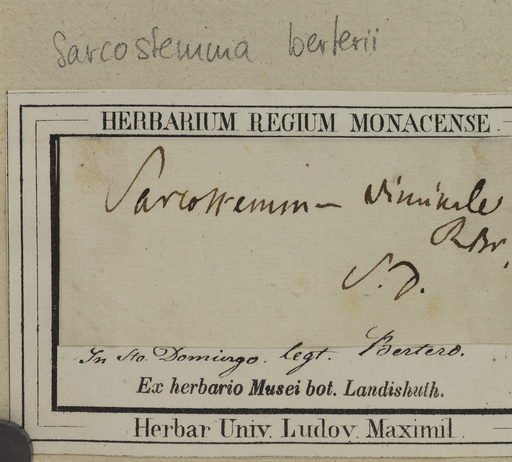 Sarcostemma berterii
HERBARIUM REGIUM MONACENSE.
Sarcostemm– viminale
R Br.
S. D.
In Sto. Domingo. legt. Bertero.
Ex herbario Musei bot. Landishuth.
Herbar Univ. Ludov. Maximil.